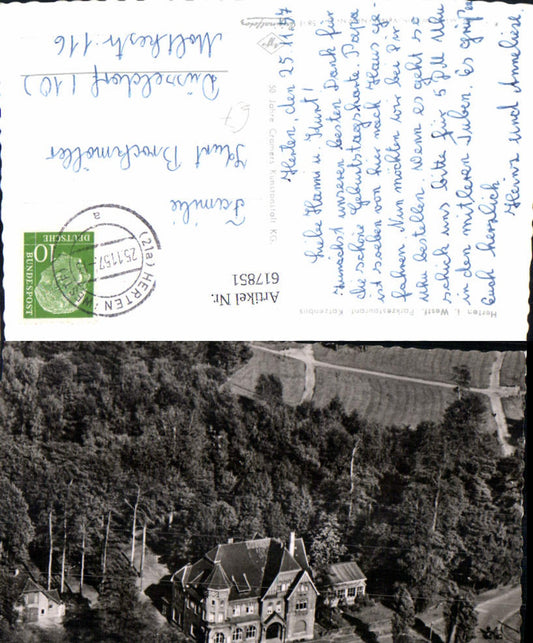 Herten, den 25.11.57
Liebe Hanni u. Kurt!
Zunächst unseren besten Dank für
die schöne Geburtstagskarte. Papa
ist soeben von hier nach Haus ge-
fahren. Nun möchten wir bei Dir
Uhu bestellen. Wenn es geht so
schick uns bitte für 5 DM Uhu
in den mittleren Tuben. Es grüßen
Euch herzlich
Heinz und Anneliese
Familie
Kurt Brockmöller
Düsseldorf (10)
Moltkestr. 116
50 Jahre Cramers Kunstanstalt KG.
Herten i. Westf. Parkrestaurant Katzenbusch
Artikel Nr.
617851
(21a) HERTEN (WESTF)
25.11.57
a
10
DEUTSCHE
BUNDESPOST